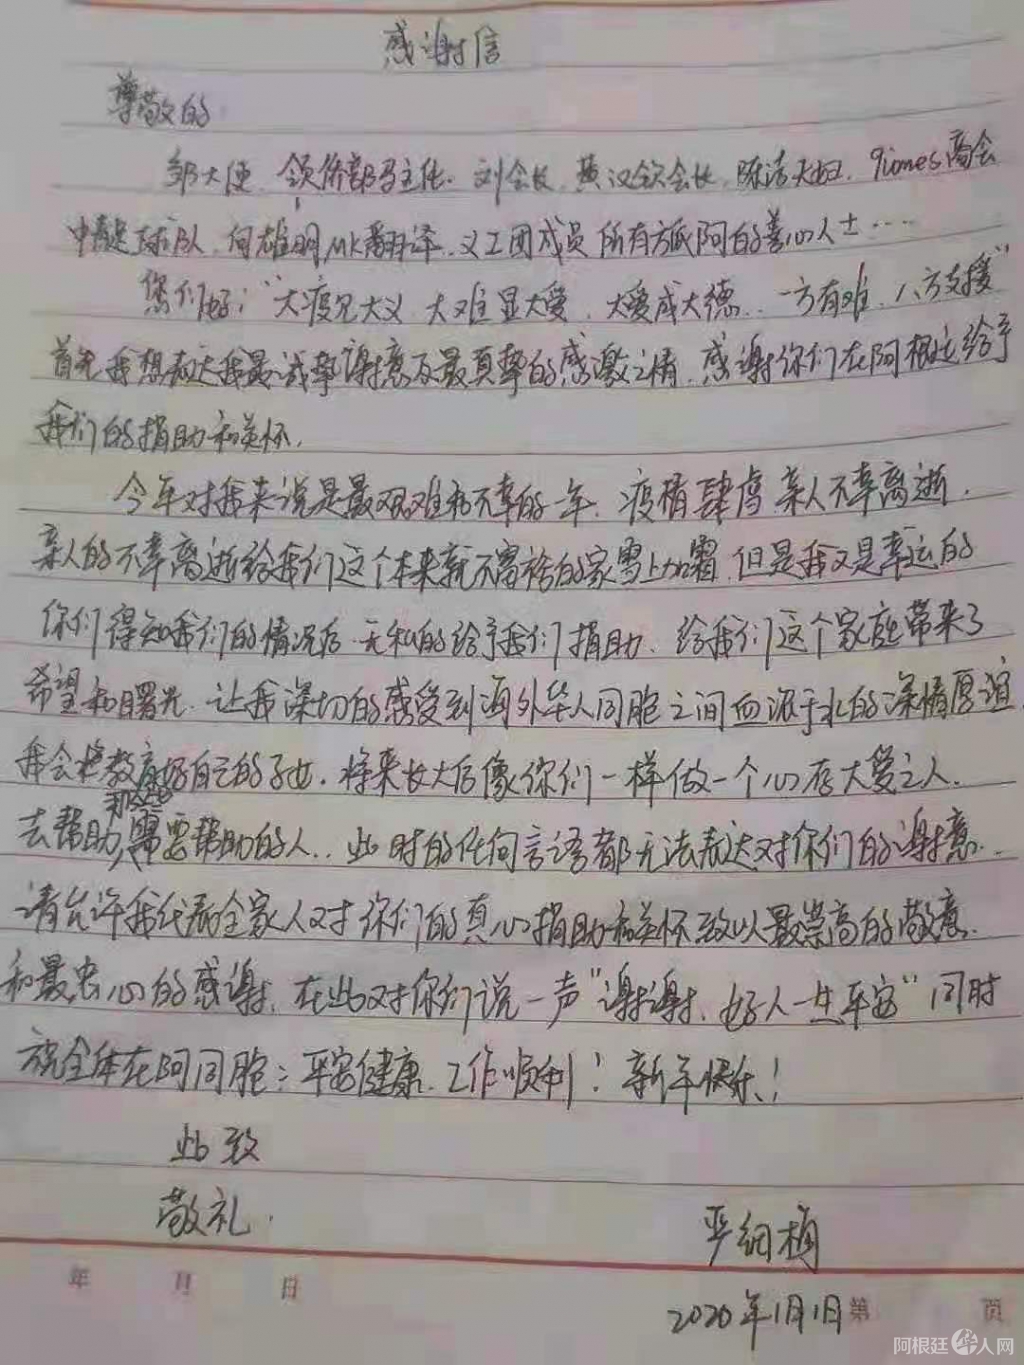 感谢信
尊敬的
邹大使、领侨部马主任、刘会长、黄汉钦会长、陈洁夫妇、9iones商会
中青足球队、何雄明MK翻译、义工团成员 所有在阿的善心人士……
您们好："大疫见大义、大难显大爱、大爱成大德、一方有难、八方支援"
首先我想表达我最诚挚谢意及最真挚的感激之情，感谢你们在阿根廷给予
我们的捐助和关怀，
今年对我来说是最艰难和不幸的一年，疫情肆虐 亲人不幸离逝，
亲人的不幸离逝给我们这个本来就不富裕的家雪上加霜，但是我又是幸运的
你们得知我们的情况后 无私的给予我们捐助，给我们这个家庭带来了
希望和曙光，让我深切的感受到海外华人同胞之间血浓于水的深情厚谊，
我会将教育好自己的子女，将来长大后像你们一样做一个心存大爱之人，
去帮助那些需要帮助的人..此时的任何言语都无法表达对你们的谢意..
请允许我代表全家人对你们的真心捐助和关怀致以最崇高的敬意，
和最衷心的感谢，在此对你们说一声"谢谢、好人一生平安"同时
祝全体在阿同胞：平安健康、工作顺利！新年快乐！
此致
敬礼.
严细梅
年 月 日
2020年1月1日 第 页
阿根廷华人网